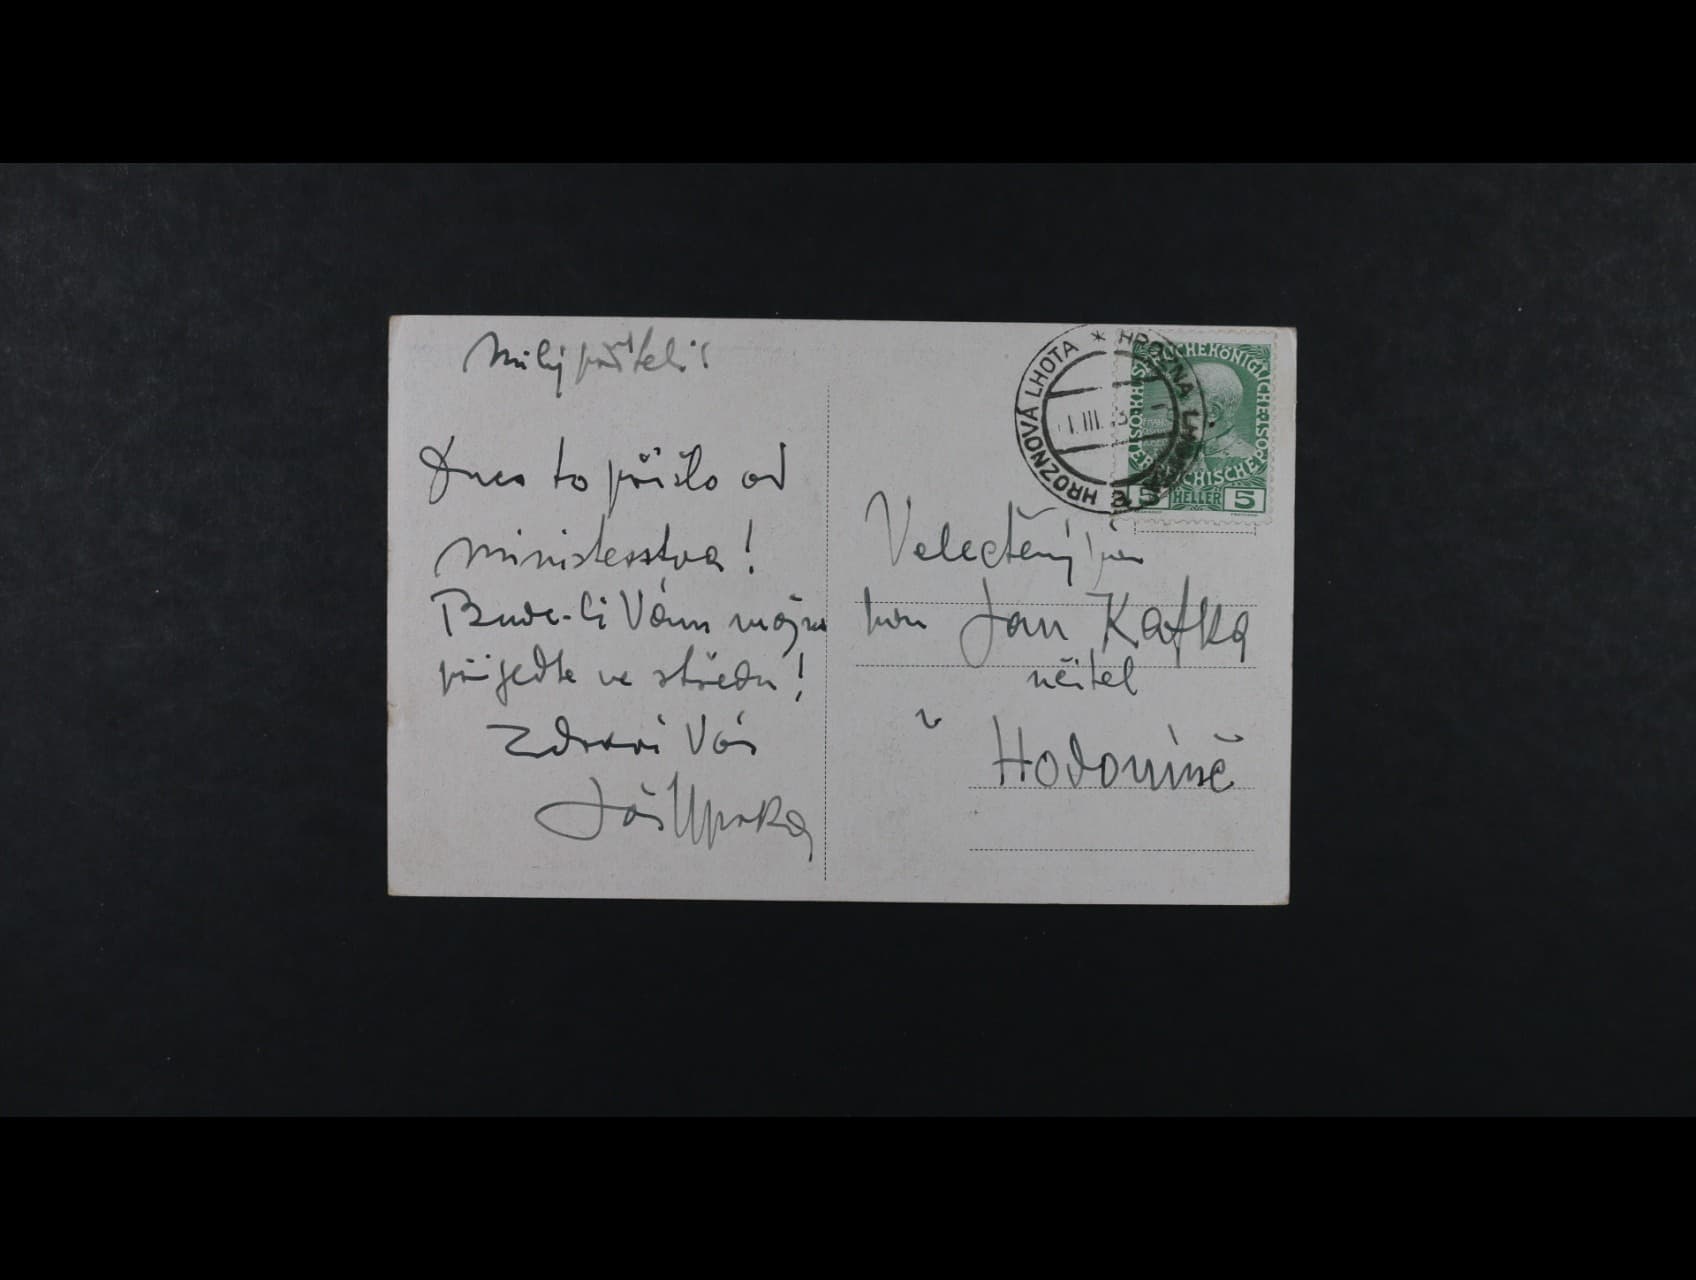 Milý příteli!
Dnes to přišlo od
ministerstva!
Bude-li Vám možno
přijeďte ve středu!
Zdraví Vás
Joža Uprka
HROZNOVÁ LHOTA * HROZNÁ LHOTA
III
KÖNIGLICHE
5 HELLER 5
Velectěný pan
pan Jan Kafka
učitel
v
Hodoníně